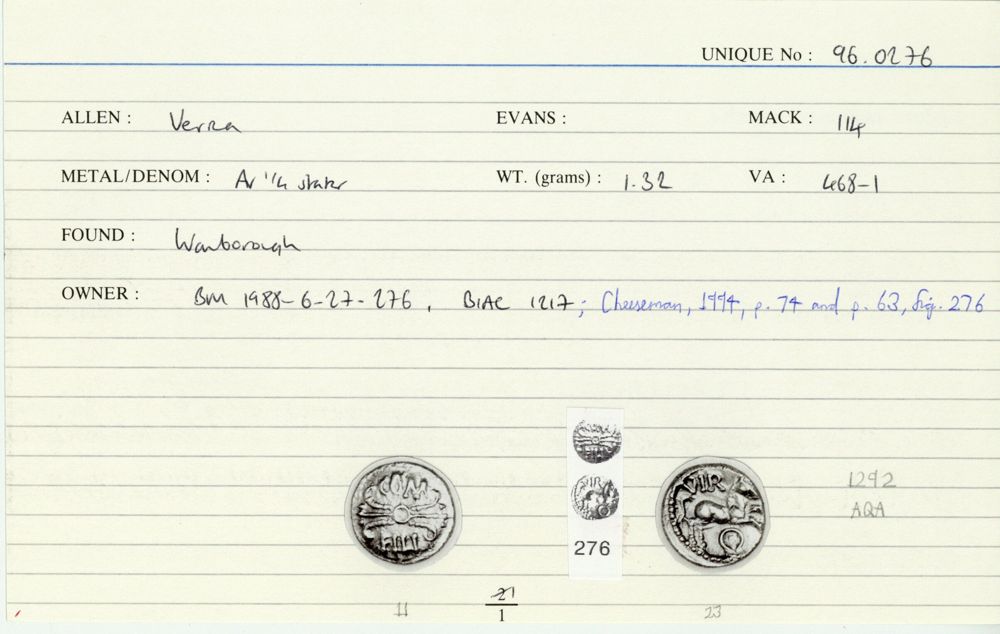 UNIQUE No : 96.0276
ALLEN : Verica EVANS : MACK : 114
METAL/DENOM : Av 1/4 stater WT. (grams) : 1.32 VA : 468-1
FOUND : Wanborough
OWNER : BM 1988-6-27-276, BIAC 1217; Cheeseman, 1994, p. 74 and p. 63, fig. 276
COM
VIR
VIR
1292
AQA
276
21
11 1 23